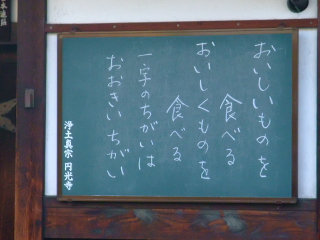 おいしいものを
食べる
おいしくものを
食べる
一字のちがいは
おおきいちがい
浄土真宗 円光寺